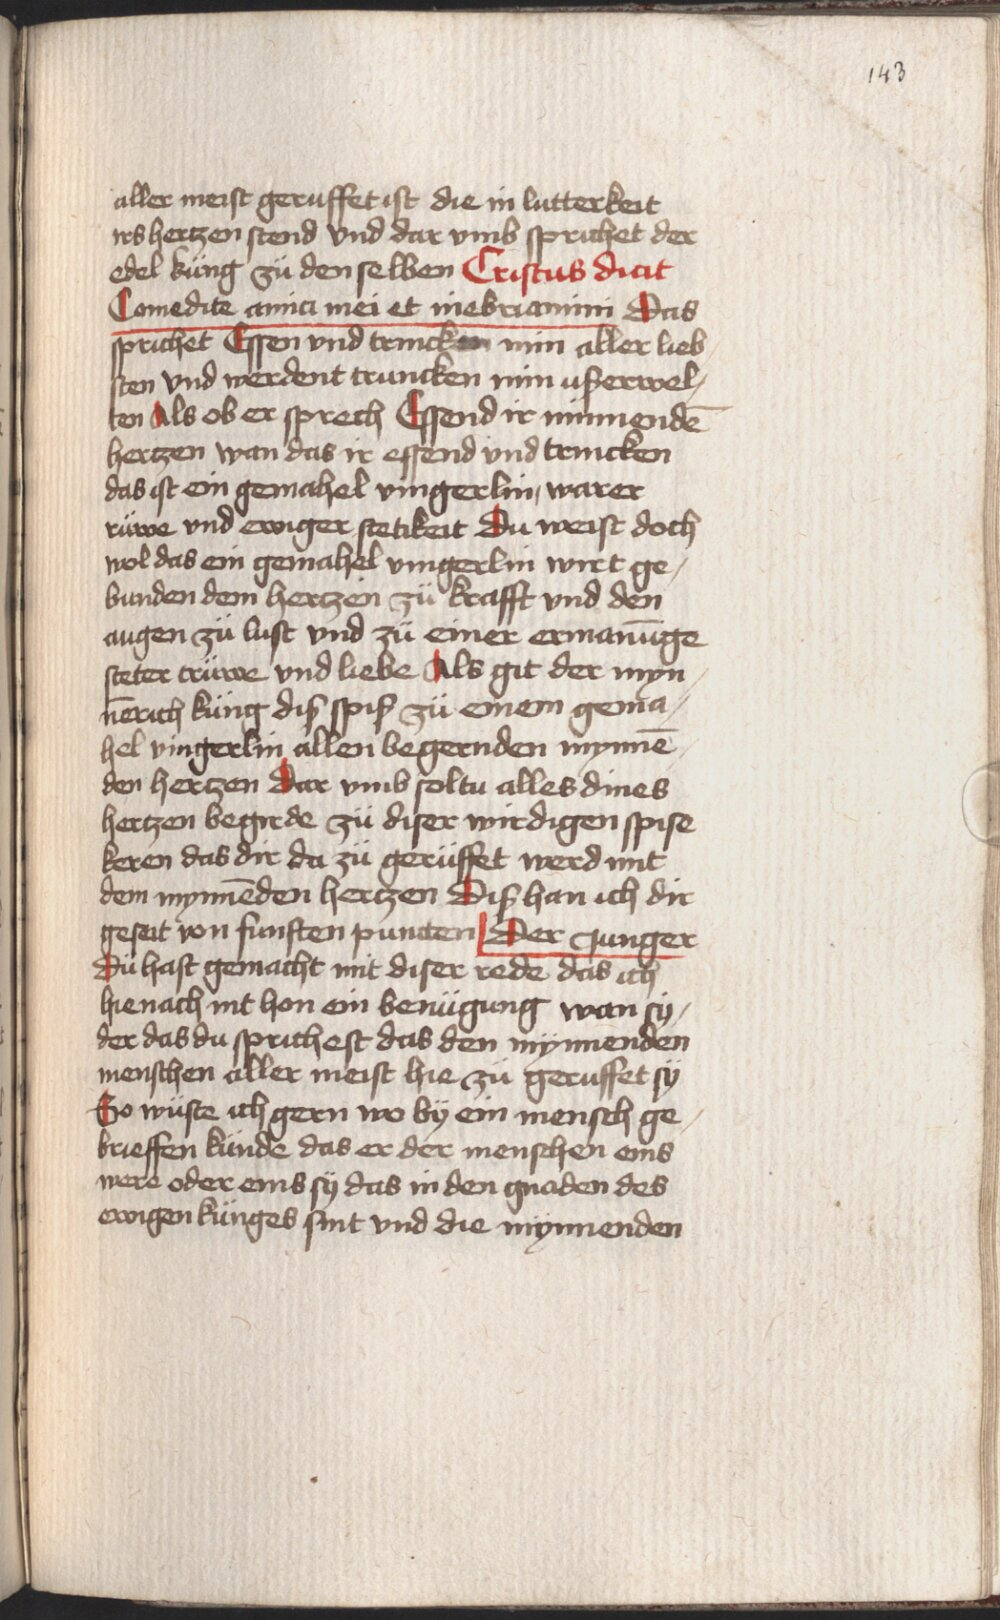 143
aller meist gerüffet ist die in lutterkeit
irs hertzen stend vnd dar vmb sprichet der
edel küng zü den selben Cristus dicit
Comedite amici mei et inebriamini Das
sprichet Essen vnd trincken min aller lieb
sten vnd werdent truncken min vßerwel⸗
ten Als ob er sprech Essend ir minnendē
hertzen wan das ir essend vnd trincken
das ist ein gemahel vingerlin, warer
rüwe vnd ewiger stetikeit Du weist doch
wol das ein gemahel vingerlin wirt ge⸗
bunden dem hertzen zü krafft vnd den
augen zü lust vnd zü einer ermanūge
steter trüwe vnd liebe Als git der myn⸗
nērich küng diß spiß zü einem gema⸗
hel vingerlin allen begernden mynnē⸗
den hertzen Dar vmb soltu alles dines
hertzen begirde zü diser wirdigen spise
keren das dir da zü gerüffet werd mit
dem mynnēden hertzen Diß han ich dir
geseit von fünften puncten Der Junger
Dü hast gemacht mit diser rede das ich
hienach nit hon ein benügung wan sy⸗
der das du sprichest das den mynnenden
menschen aller meist hie zü gerüffet sÿ
So wüste ich gern wo bÿ ein mensch ge⸗
brieffen künde das er der menschen eins
were oder eins sÿ das in den gnaden des
ewigen künges sint vnd die mynnenden